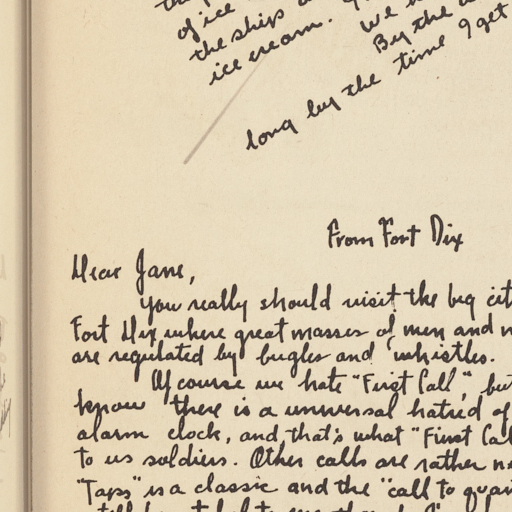 of ice
the ships
ice cream.
We
By the
long by the time I get
From Fort Dix
Dear Jane,
You really should visit the big
Fort Dix where great masses of men and
are regulated by bugles and whistles.
Of course we hate "First Call", but
know there is a universal hatred of
alarm clock, and that's what "First
to us soldiers. Other calls are rather
"Taps" is a classic and the "call to